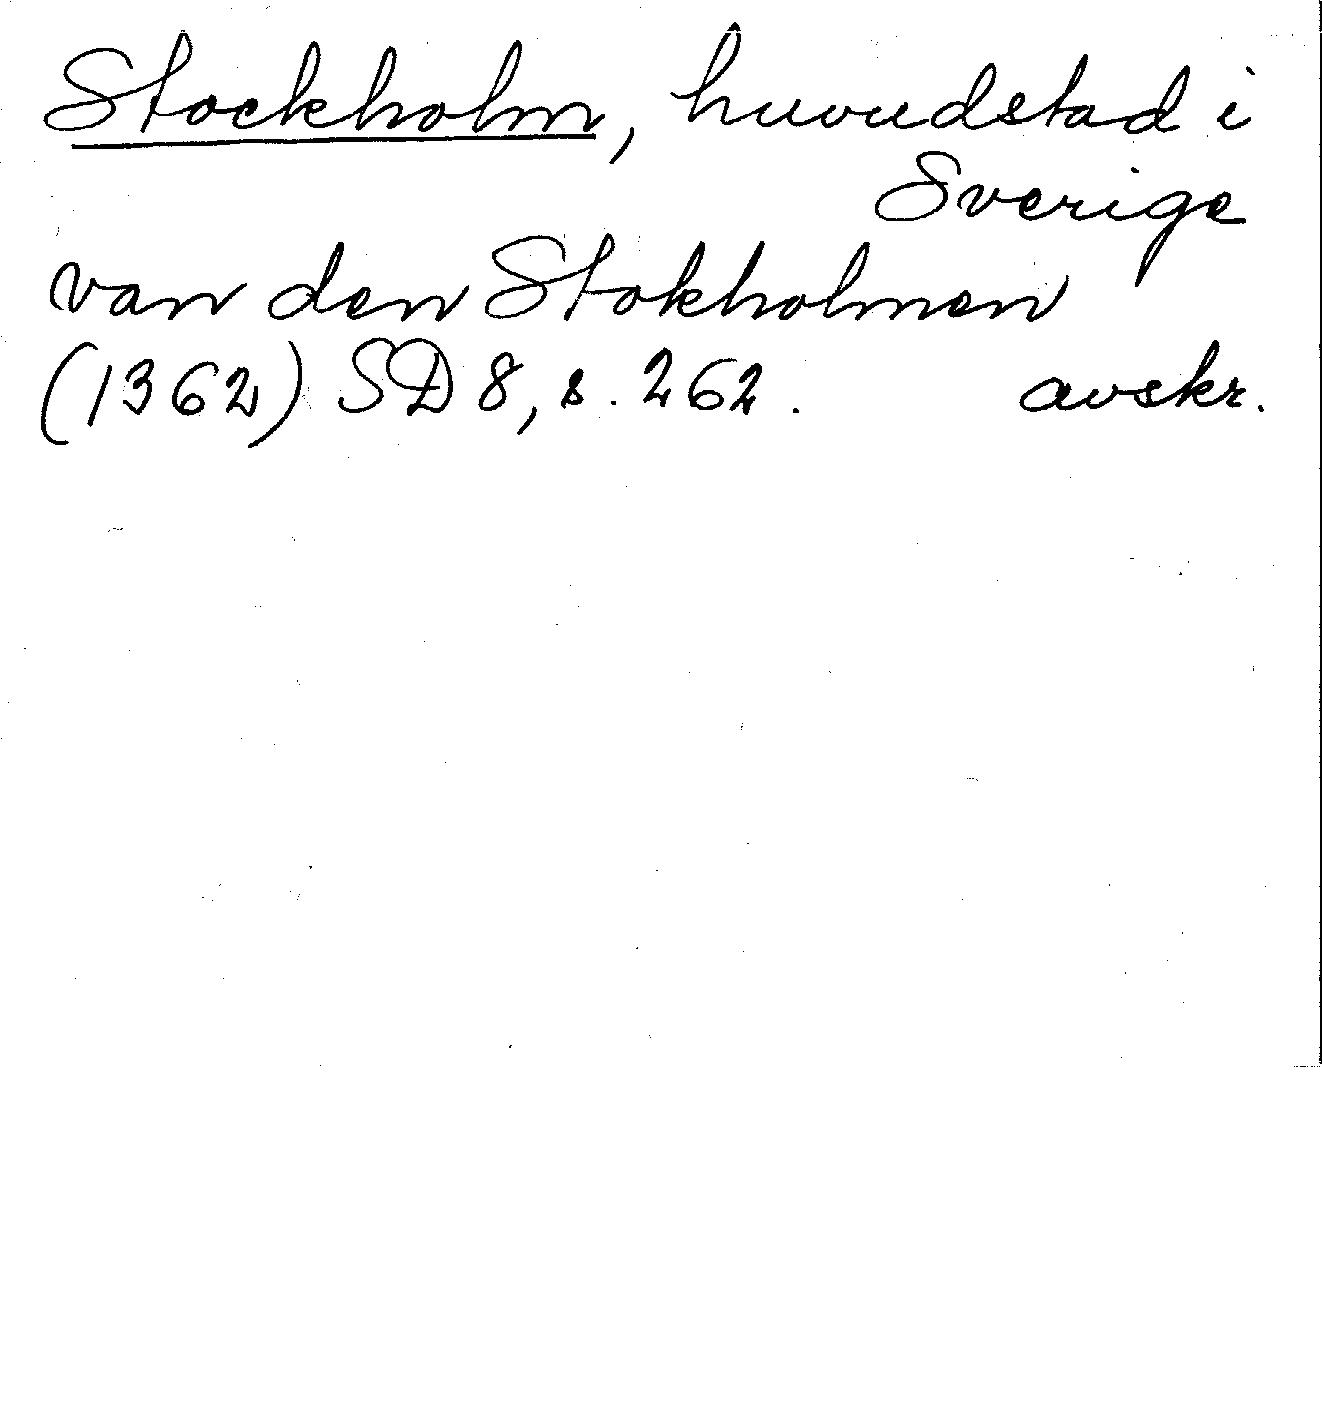 Stockholm, huvudstad i
Sverige
van den Stokholmen
(1362) SD 8, s. 262. avskr.